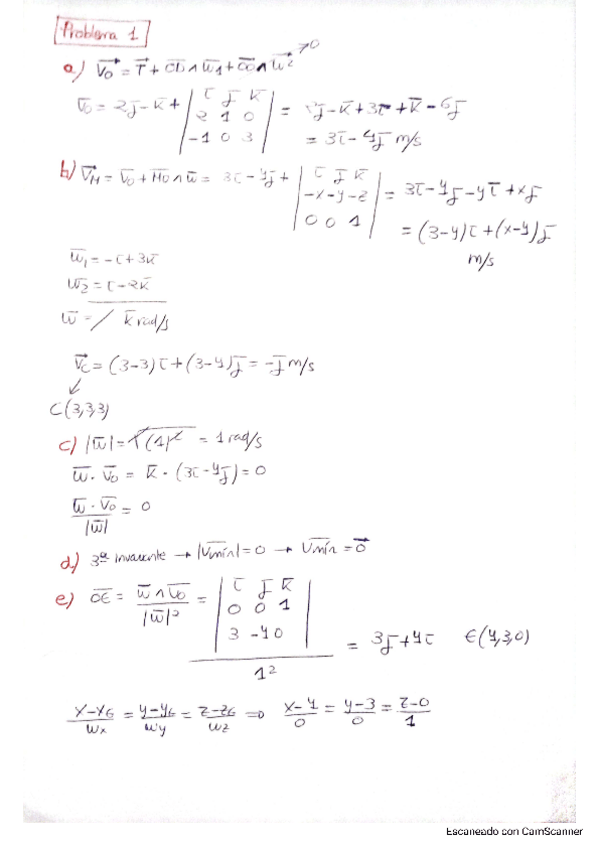 Problema 1
a) V̄o = T̄ + C̄D∧w̄1 + C̄O∧w̄2 →0
V̄o = 2j - k + | i j k | = 2j - k + 3i + k - 6j
| 2 1 0 |
| -1 0 3 | = 3i - 4j m/s
b) V̄M = V̄o + M̄O∧w̄ = 3i - 4j + | i j k | = 3i - 4j - yi + xj
| -x -y -z |
| 0 0 1 | = (3-y)i + (x-4)j
m/s
w̄1 = -i + 3k
w̄2 = i - 2k
w̄ = / k rad/s
V̄c = (3-3)i + (3-4)j = -j m/s
↙
C(3,3,3)
c) |w̄| = √(1)² = 1 rad/s
w̄ · V̄o = k · (3i - 4j) = 0
w̄ · V̄o / |w̄| = 0
d) 3ª invariante → |V̄mín| = 0 → V̄mín = 0̄
e) ŌE = w̄∧V̄o / |w̄|² = | i j k |
| 0 0 1 |
| 3 -4 0 | = 3j + 4i E(4,3,0)
1²
x-xG / wx = y-yG / wy = z-zG / wz ⇒ x-4 / 0 = y-3 / 0 = z-0 / 1
Escaneado con CamScanner